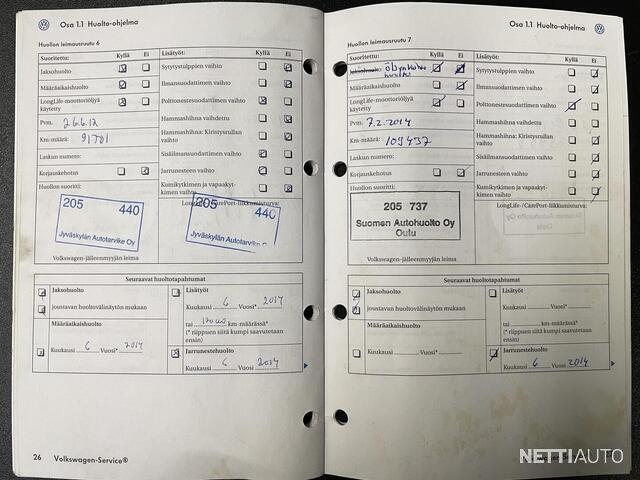 Osa 1.1 Huolto-ohjelma
Huollon leimausruutu 6
Suoritettu: Kyllä Ei
Jaksohuolto
Määräaikaishuolto
LongLife-moottoriöljyä
käytetty
Pvm. 26.6.12
Km-määrä: 91781
Laskun numero:
Korjauskehotus
Huollon suoritti:
205 440
Jyväskylän Autotarvike Oy
Volkswagen-jälleenmyyjän leima
Lisätyöt: Kyllä Ei
Sytytystulppien vaihto
Ilmansuodattimen vaihto
Polttonestesuodattimen vaihto
Hammashihna vaihdettu
Hammashihna: Kiristysrullan
vaihto
Sisäilmansuodattimen vaihto
Jarrunesteen vaihto
Kumikytkimen ja vapaakyt-
kimen vaihto
LongLife-/CarePort-liikkumisturva:
205 440
Jyväskylän Autotarvike
Seuraavat huoltotapahtumat
Jaksohuolto
joustavan huoltovälinäytön mukaan
Määräaikaishuolto
Kuukausi 6 Vuosi* 2014
Lisätyöt
Kuukausi 6 Vuosi* 2014
tai km-määrässä*
(* riippuen siitä kumpi saavutetaan
ensin)
Jarrunestehuolto
Kuukausi 6 Vuosi 2014
26 Volkswagen-Service®
Osa 1.1 Huolto-ohjelma
Huollon leimausruutu 7
Suoritettu: Kyllä Ei
Jaksohuolto öljynvaihto
huolto
Määräaikaishuolto
LongLife-moottoriöljyä
käytetty
Pvm. 7.2.2014
Km-määrä: 109437
Laskun numero:
Korjauskehotus
Huollon suoritti:
205 737
Suomen Autohuolto Oy
Oulu
Volkswagen-jälleenmyyjän leima
Lisätyöt: Kyllä Ei
Sytytystulppien vaihto
Ilmansuodattimen vaihto
Polttonestesuodattimen vaihto
Hammashihna vaihdettu
Hammashihna: Kiristysrullan
vaihto
Sisäilmansuodattimen vaihto
Jarrunesteen vaihto
Kumikytkimen ja vapaakyt-
kimen vaihto
LongLife-/CarePort-liikkumisturva:
Seuraavat huoltotapahtumat
Jaksohuolto
joustavan huoltovälinäytön mukaan
Määräaikaishuolto
Kuukausi Vuosi*
Lisätyöt
Kuukausi Vuosi*
tai km-määrässä*
(* riippuen siitä kumpi saavutetaan
ensin)
Jarrunestehuolto
Kuukausi 6 Vuosi 2014
NETTIAUTO